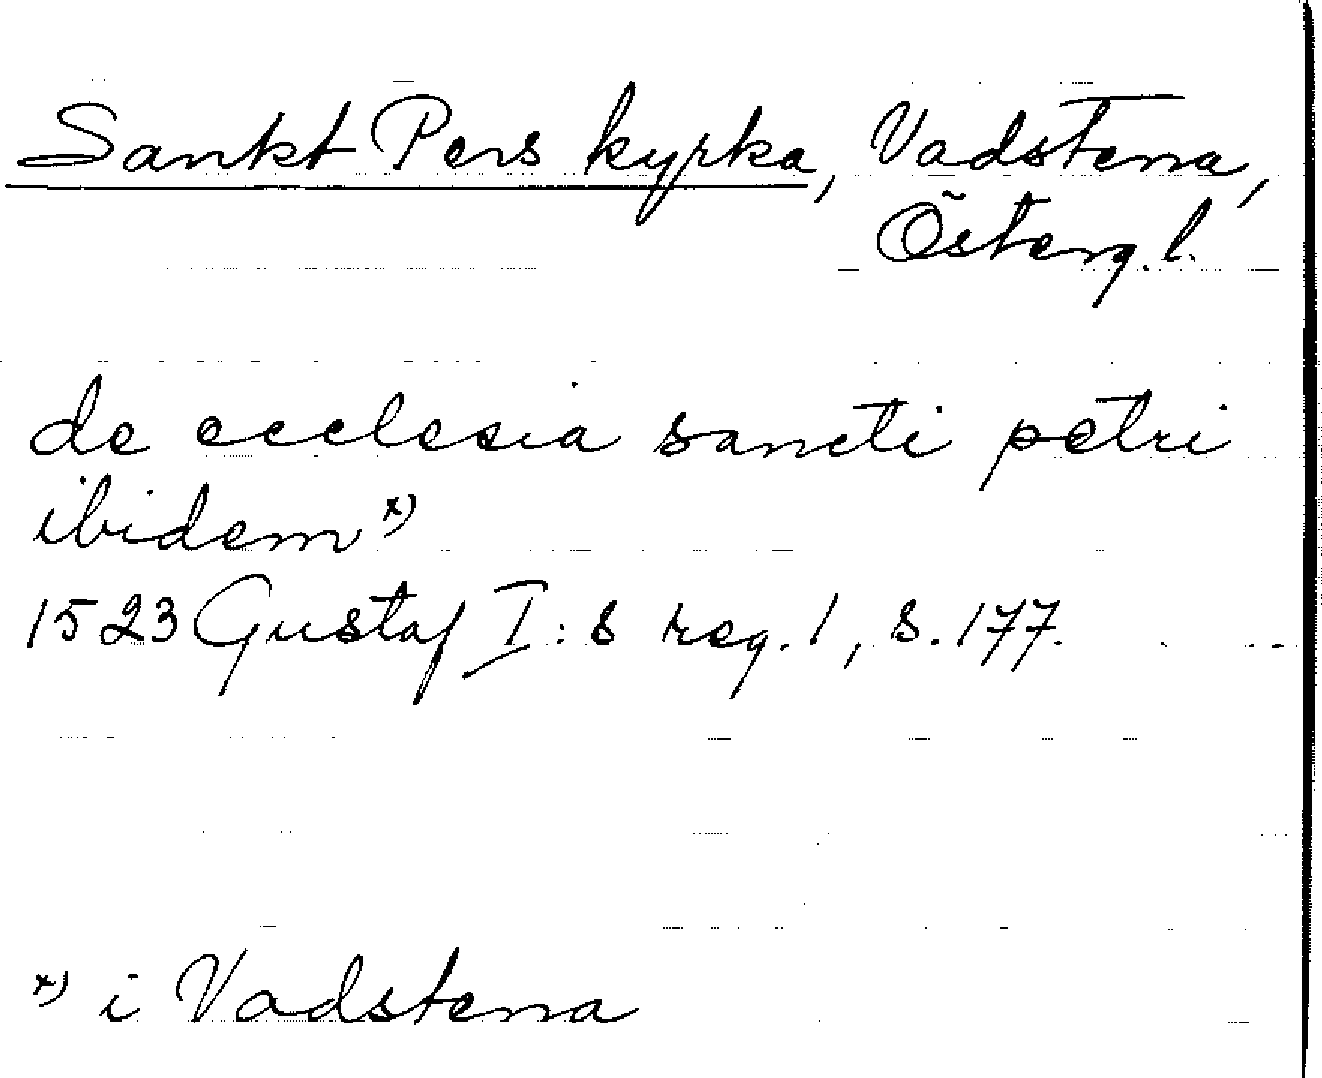 Sankt Pers kyrka, Vadstena,
Österg.l.
de ecclesia sancti petri
ibidem x)
1523 Gustaf I:s reg. 1, s. 177.
x) i Vadstena